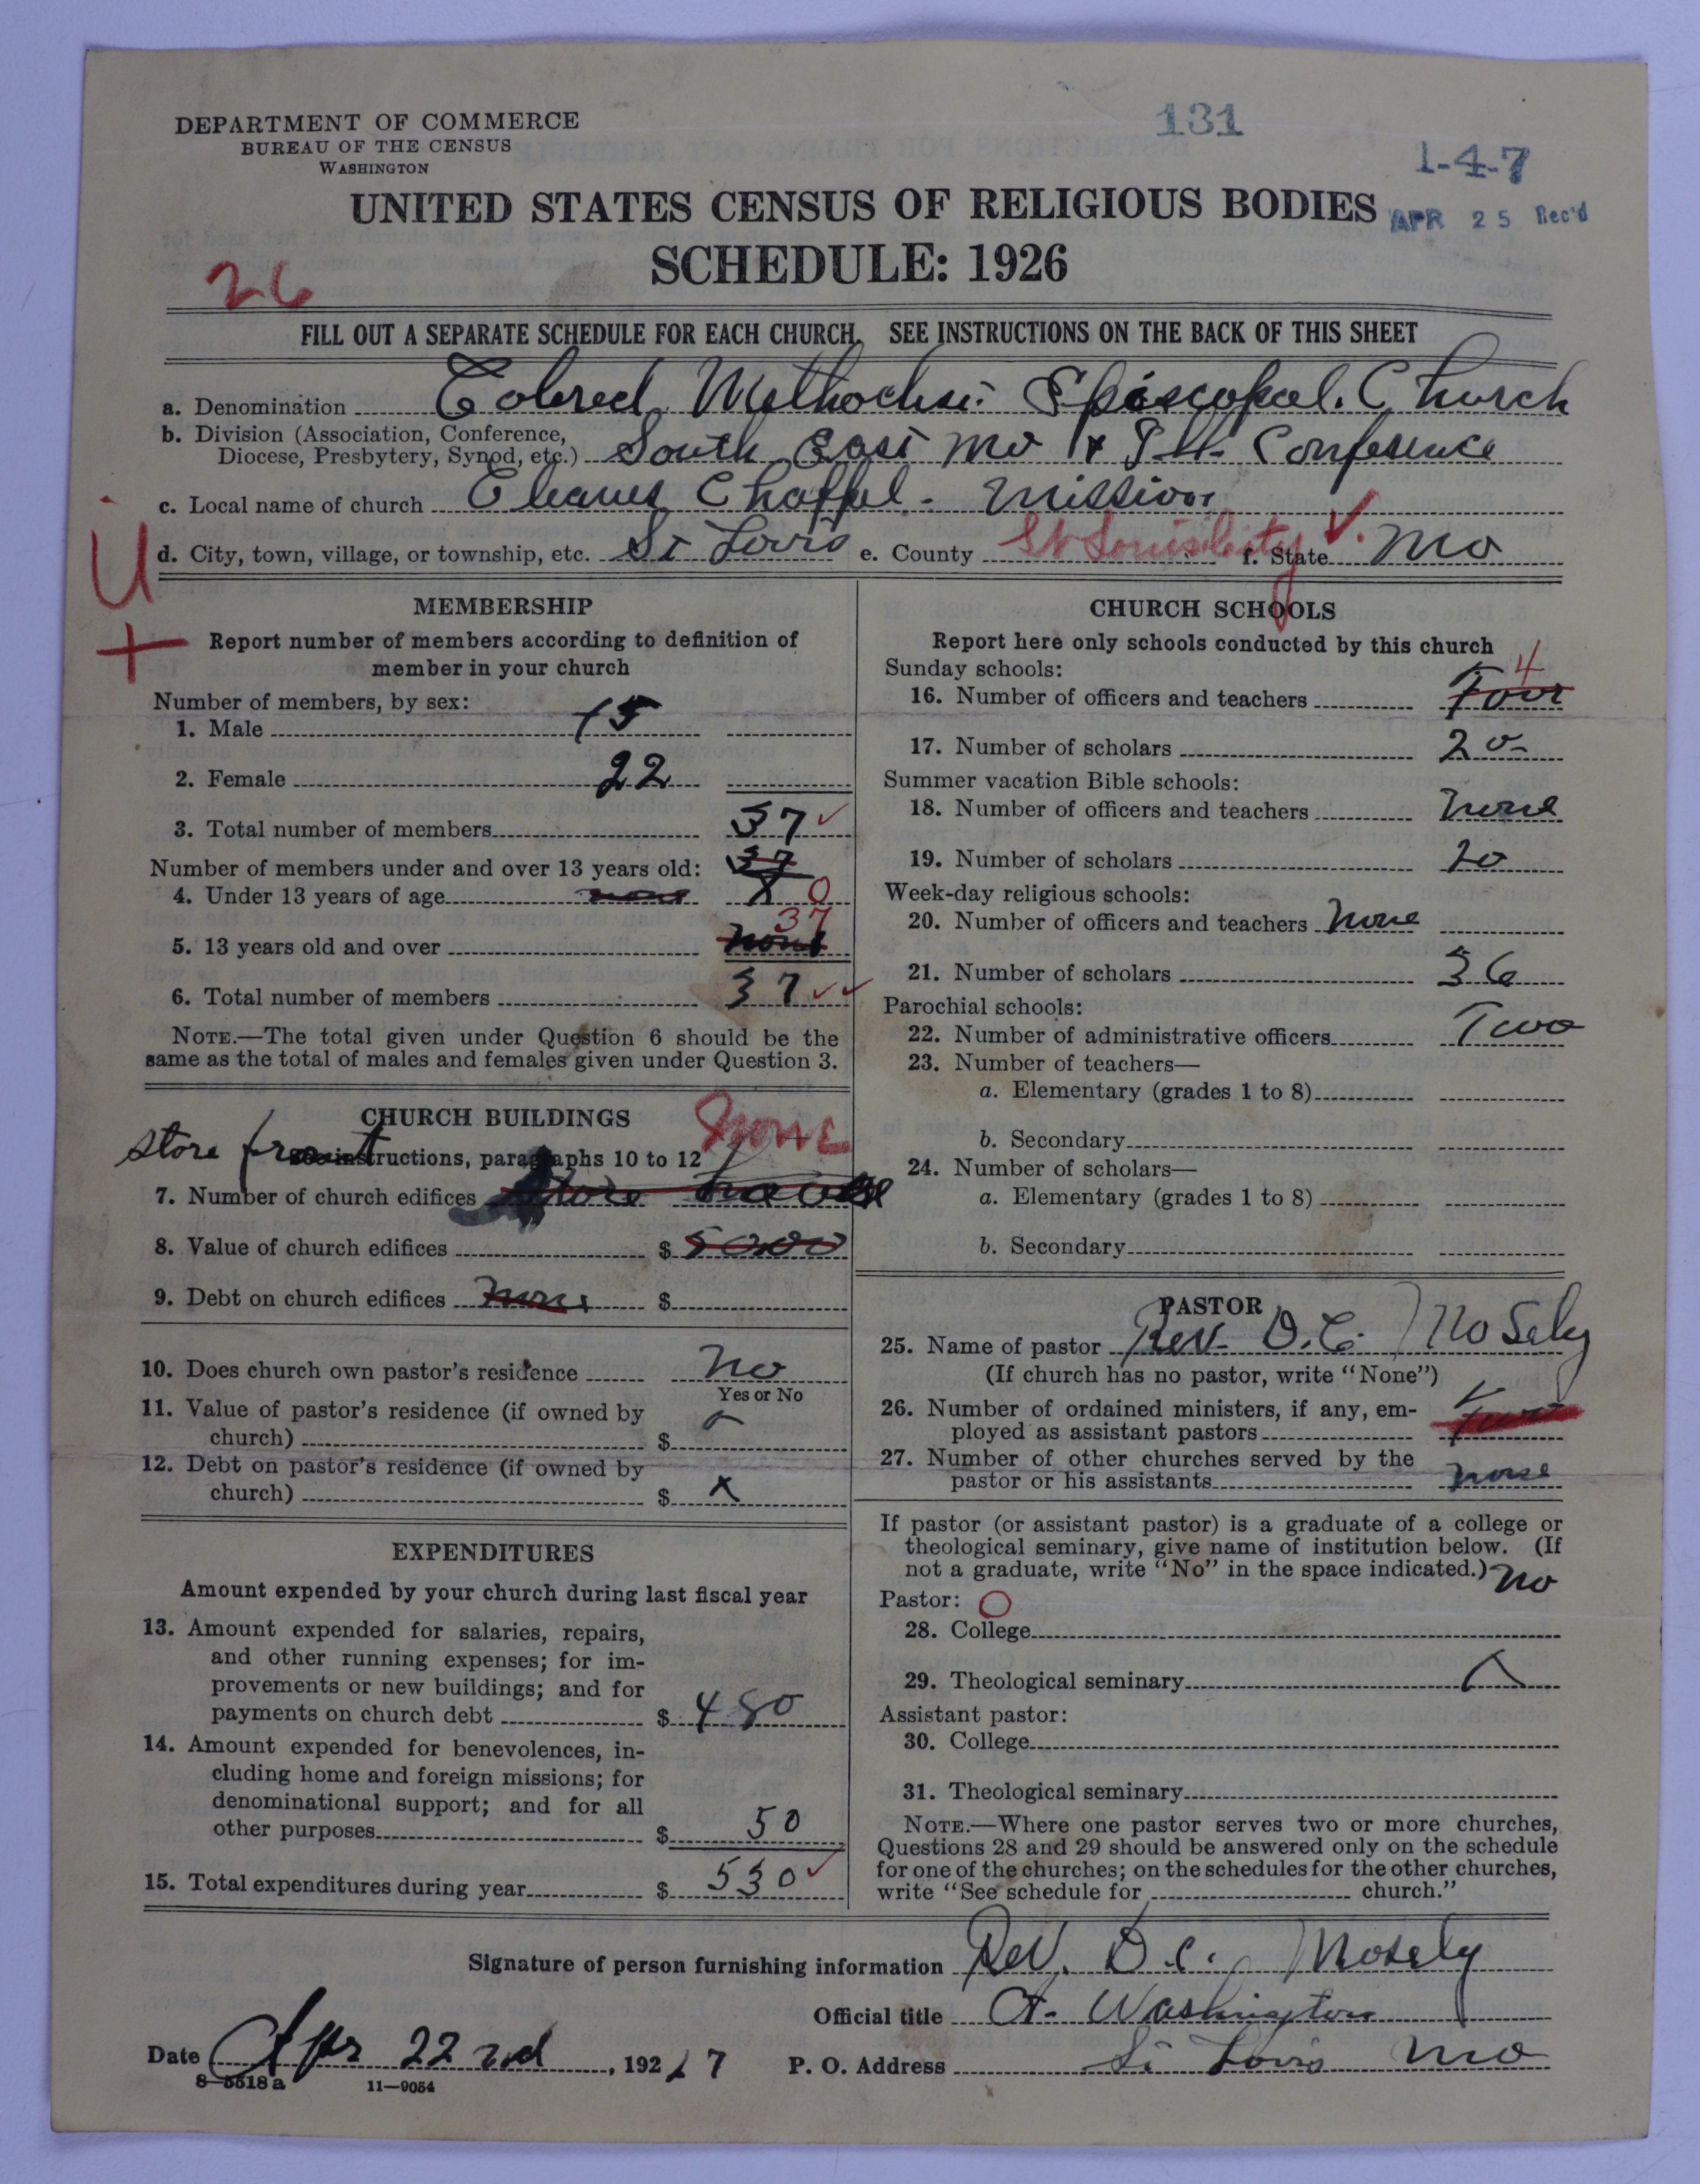 DEPARTMENT OF COMMERCE
BUREAU OF THE CENSUS
WASHINGTON
131
1-4-7
APR 25 Rec'd
UNITED STATES CENSUS OF RELIGIOUS BODIES
SCHEDULE: 1926
26
FILL OUT A SEPARATE SCHEDULE FOR EACH CHURCH. SEE INSTRUCTIONS ON THE BACK OF THIS SHEET
a. Denomination Colored Methodist Episcopal Church
b. Division (Association, Conference,
Diocese, Presbytery, Synod, etc.) South East Mo & Ill. Conference
c. Local name of church Cleaves Chappel - Mission
d. City, town, village, or township, etc. St Louis e. County St Louis City f. State Mo
MEMBERSHIP
Report number of members according to definition of
member in your church
Number of members, by sex:
1. Male 15
2. Female 22
3. Total number of members 37
Number of members under and over 13 years old: 37
4. Under 13 years of age none X 0
37
5. 13 years old and over none
6. Total number of members 37
NOTE.—The total given under Question 6 should be the
same as the total of males and females given under Question 3.
CHURCH BUILDINGS
None
store front
See instructions, paragraphs 10 to 12
7. Number of church edifices
8. Value of church edifices $ 5000
9. Debt on church edifices none $
10. Does church own pastor's residence No
Yes or No
11. Value of pastor's residence (if owned by
church) $
12. Debt on pastor's residence (if owned by
church) $ X
EXPENDITURES
Amount expended by your church during last fiscal year
13. Amount expended for salaries, repairs,
and other running expenses; for im-
provements or new buildings; and for
payments on church debt $ 480
14. Amount expended for benevolences, in-
cluding home and foreign missions; for
denominational support; and for all
other purposes $ 50
15. Total expenditures during year $ 530
CHURCH SCHOOLS
Report here only schools conducted by this church
Sunday schools:
4
16. Number of officers and teachers Four
17. Number of scholars 20
Summer vacation Bible schools:
18. Number of officers and teachers none
19. Number of scholars 20
Week-day religious schools:
20. Number of officers and teachers none
21. Number of scholars 36
Parochial schools:
22. Number of administrative officers Two
23. Number of teachers—
a. Elementary (grades 1 to 8)
b. Secondary
24. Number of scholars—
a. Elementary (grades 1 to 8)
b. Secondary
PASTOR
25. Name of pastor Rev. D. C. Mosely
(If church has no pastor, write "None")
26. Number of ordained ministers, if any, em-
ployed as assistant pastors
27. Number of other churches served by the
pastor or his assistants none
If pastor (or assistant pastor) is a graduate of a college or
theological seminary, give name of institution below. (If
not a graduate, write "No" in the space indicated.) No
Pastor: O
28. College
29. Theological seminary
Assistant pastor:
30. College
31. Theological seminary
NOTE.—Where one pastor serves two or more churches,
Questions 28 and 29 should be answered only on the schedule
for one of the churches; on the schedules for the other churches,
write "See schedule for church."
Signature of person furnishing information Rev. D. C. Mosely
Official title Washington
Date Apr 22nd, 1927 P. O. Address St Louis Mo
8—5518a 11—9054